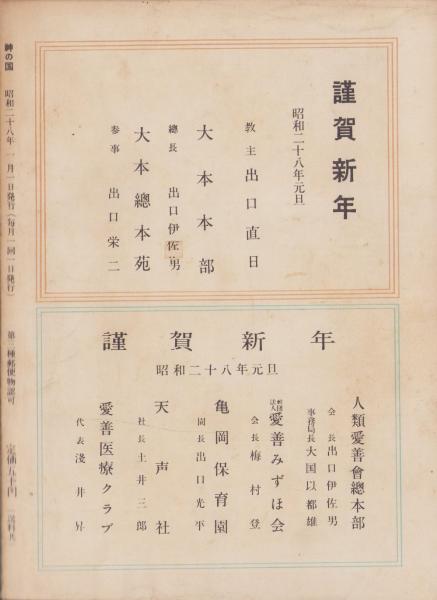 謹賀新年
昭和二十八年元旦
教主 出口直日
大本本部
總長 出口伊佐男
大本總本苑
参事 出口栄二
謹賀新年
昭和二十八年元旦
人類愛善會總本部
会長 出口伊佐男
事務局長 大国以都雄
財団法人 愛善みずほ会
会長 梅村登
亀岡保育園
園長 出口光平
天声社
社長 土井三郎
愛善医療クラブ
代表 淺井昇
神の国 昭和二十八年一月一日発行(毎月一回一日発行) 第三種郵便物認可 定価五十円